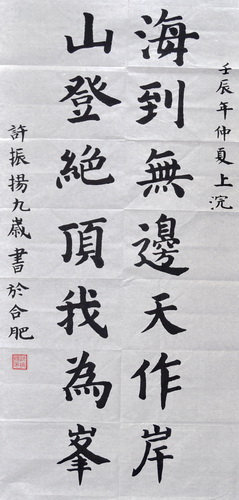 壬辰年仲夏上浣
海到無邊天作岸
山登絕頂我為峯
許振揚九歲書於合肥